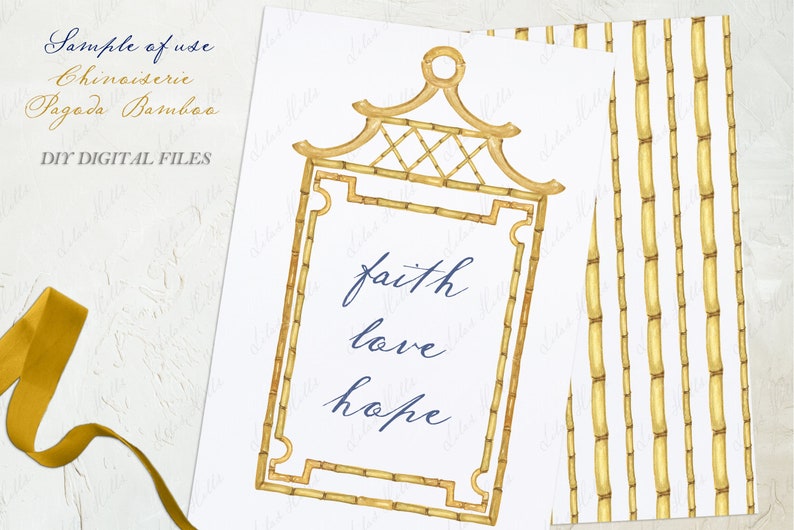 Sample of use
Chinoiserie
Pagoda Bamboo
DIY DIGITAL FILES
faith
love
hope